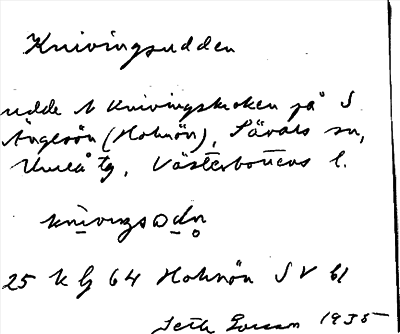 Knivingsudden
udde N Knivingskroken på S
Ängesön (Holmön), Sävars sn,
Umeå tg, Västerbottens l.
knivings
25 k bj 64 Holmön SV bl
1935